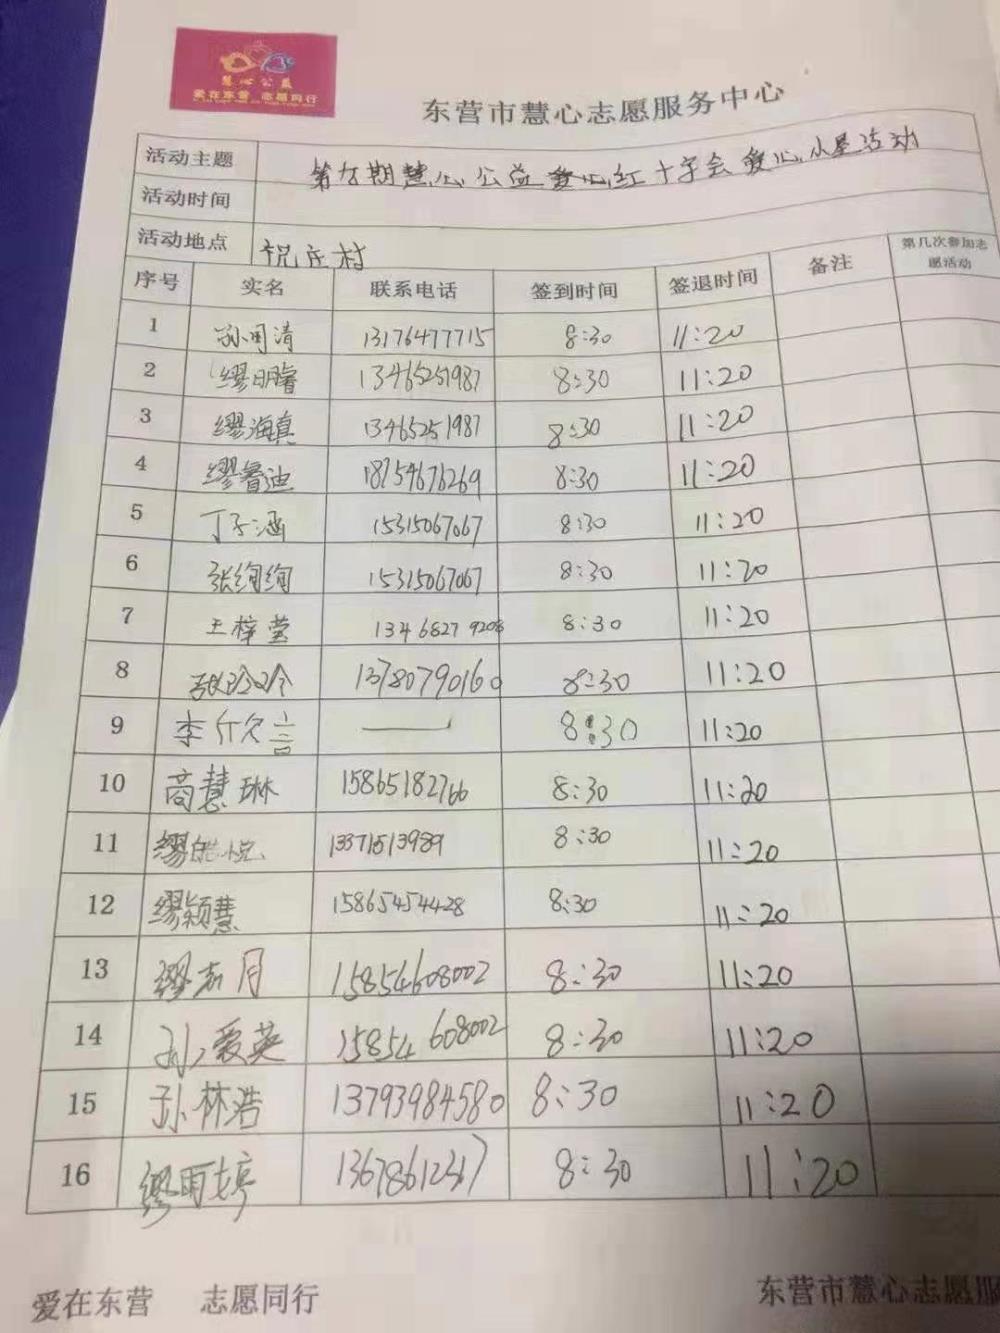 慧心公益
爱在东营 志愿同行
东营市慧心志愿服务中心
活动主题 第九期慧心公益爱心红十字会爱心小屋活动
活动时间
活动地点 祝庄村
序号 实名 联系电话 签到时间 签退时间 备注 第几次参加志愿活动
1 孙国清 13176477715 8:30 11:20
2 缪明睿 13465251987 8:30 11:20
3 缪海真 13465251987 8:30 11:20
4 缪睿迪 18754676269 8:30 11:20
5 丁子涵 15315067067 8:30 11:20
6 张绚绚 15315067067 8:30 11:20
7 王梓莹 13468279208 8:30 11:20
8 张玲玲 13780790160 8:30 11:20
9 李欣言 — 8:30 11:20
10 高慧琳 15865182766 8:30 11:20
11 缪皓悦 13371513989 8:30 11:20
12 缪颖慧 15865454428 8:30 11:20
13 缪志月 15854608002 8:30 11:20
14 孙爱英 15854608002 8:30 11:20
15 孙林浩 13793984580 8:30 11:20
16 缪雨婷 13678612317 8:30 11:20
爱在东营 志愿同行 东营市慧心志愿服